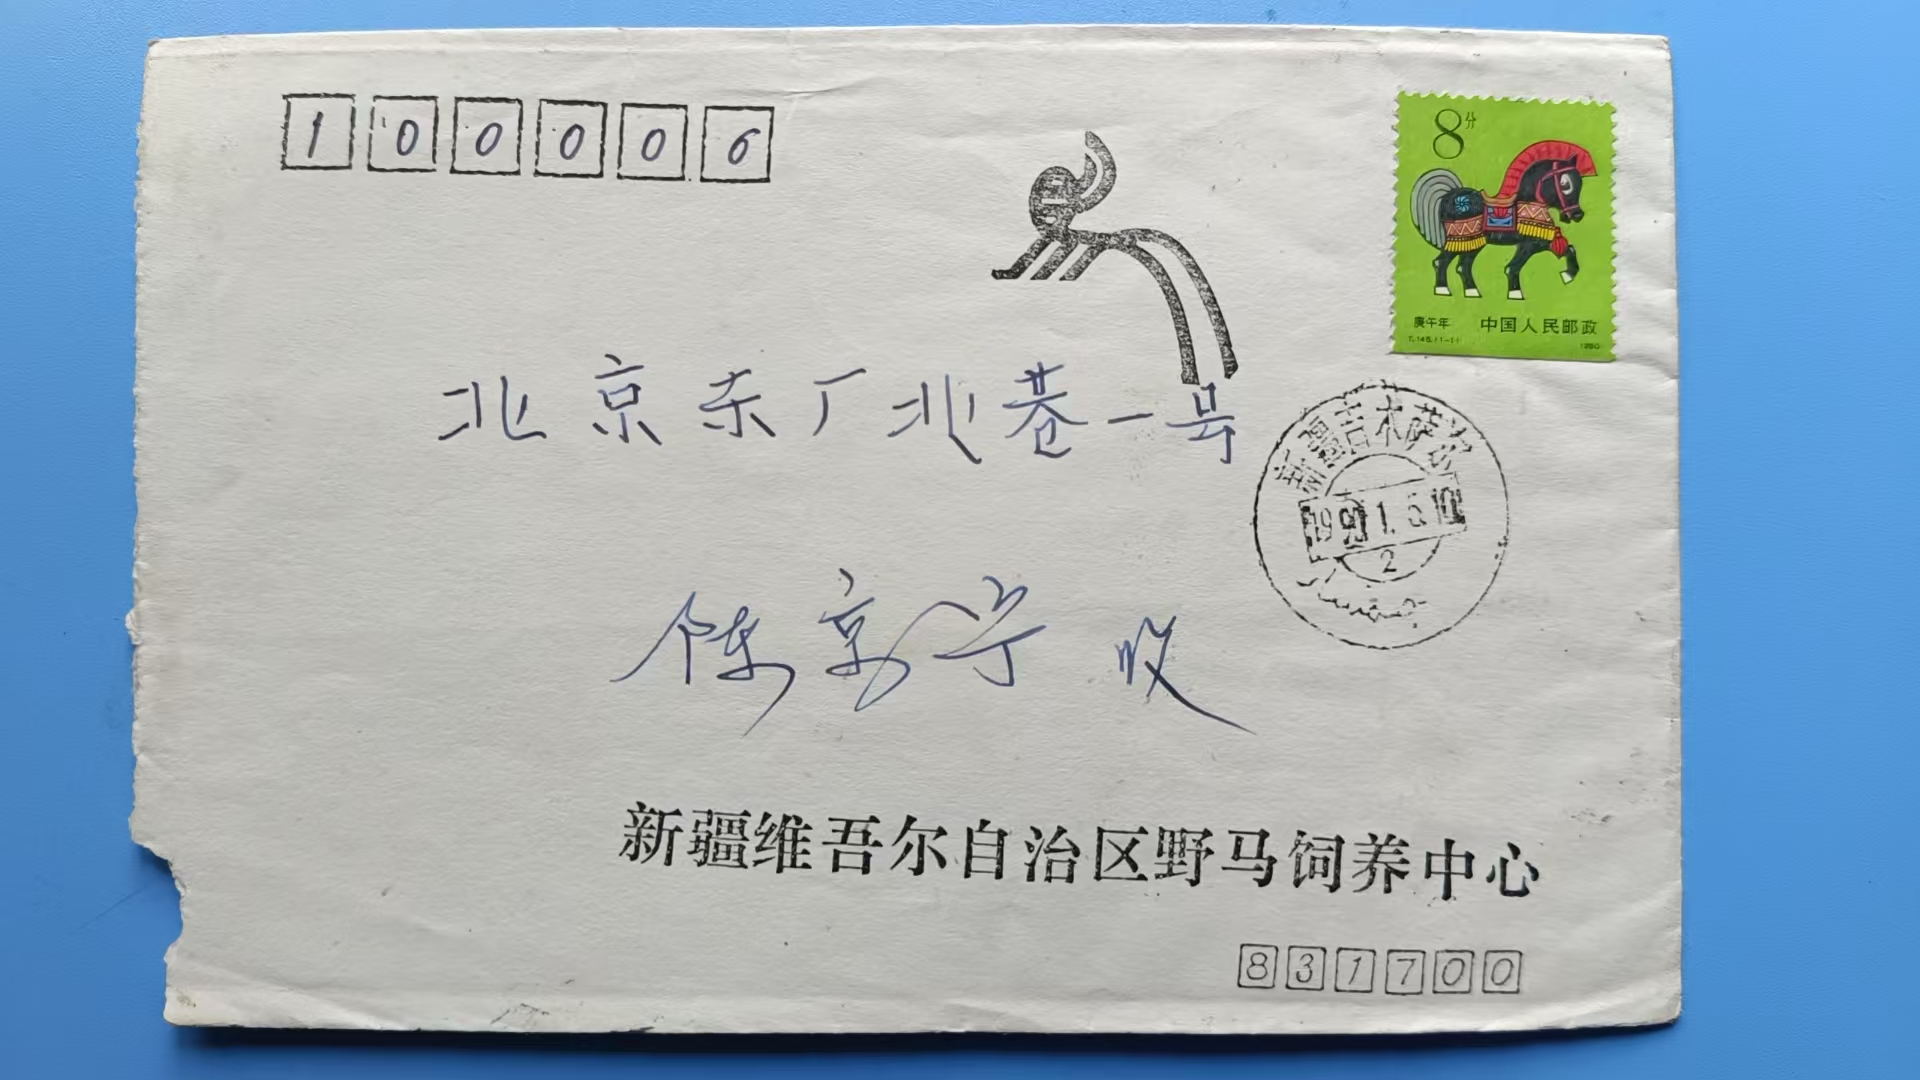 100006
8分
庚午年 中国人民邮政
T.146.(1-1) 1990
北京东厂北巷一号
新疆吉木萨尔
2
陈京宁 收
新疆维吾尔自治区野马饲养中心
831700